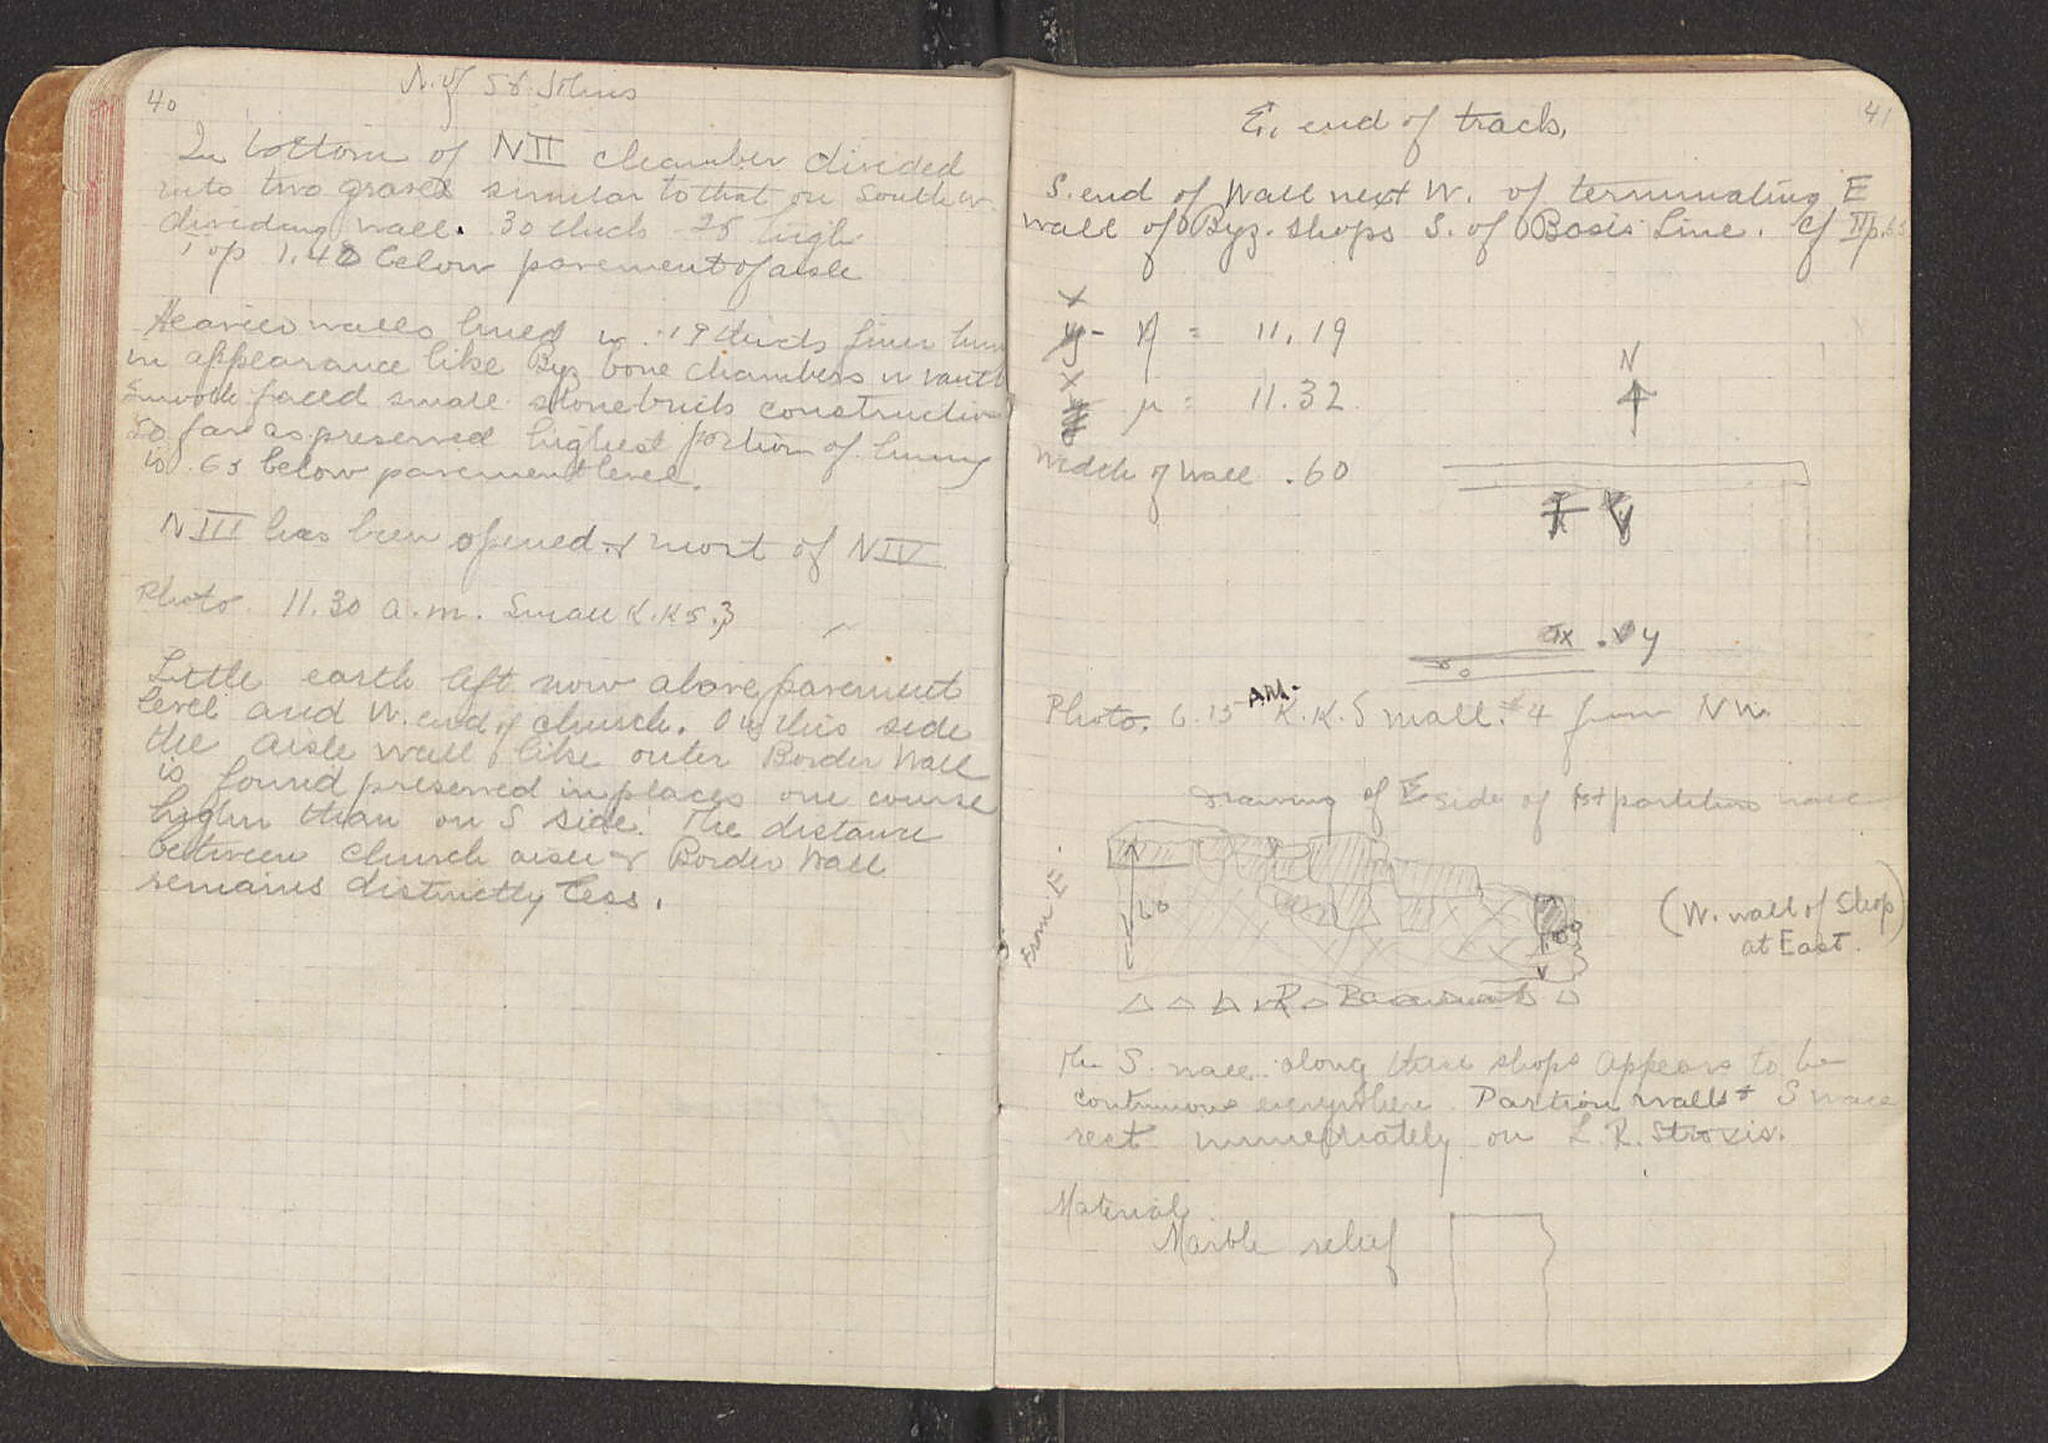 40
N. of St. Johns
In bottom of NII chamber divided
into two graves similar to that on South w.
dividing wall .30 thick .25 high
Top 1.40 below pavement of aisle
Heavier walls lined w .19 thick finer
in appearance like Byz bone chambers w vault
Smooth faced small stone bricks construction
So far as preserved highest portion of lining
is .63 below pavement level.
NIII has been opened & most of NIV
Photo. 11.30 a.m. Small K.K 5.3
Little earth left now above pavement
level and W. end of church. On this side
the aisle wall like outer Border Wall
is found preserved in places one course
higher than on S side. The distance
between church aisle & Border Wall
remains distinctly less.
41
E. end of track.
S. end of Wall next W. of terminating E
wall of Byz. shops S. of Basis Line. Cf IIp.
x
y - η = 11.19
x
μ = 11.32
Width of Wall .60
N
x y
x . y
Photo. 6.15 A.M. K.K. Small #4 from NW.
Drawing of E side of 1st partition wall
From E.
(W. wall of Shop
at East.
R. Basement
The S. wall along these shops appears to be
continuous everywhere. Partion walls & S wall
rest immediately on L.R. Stroxis.
Material
Marble relief